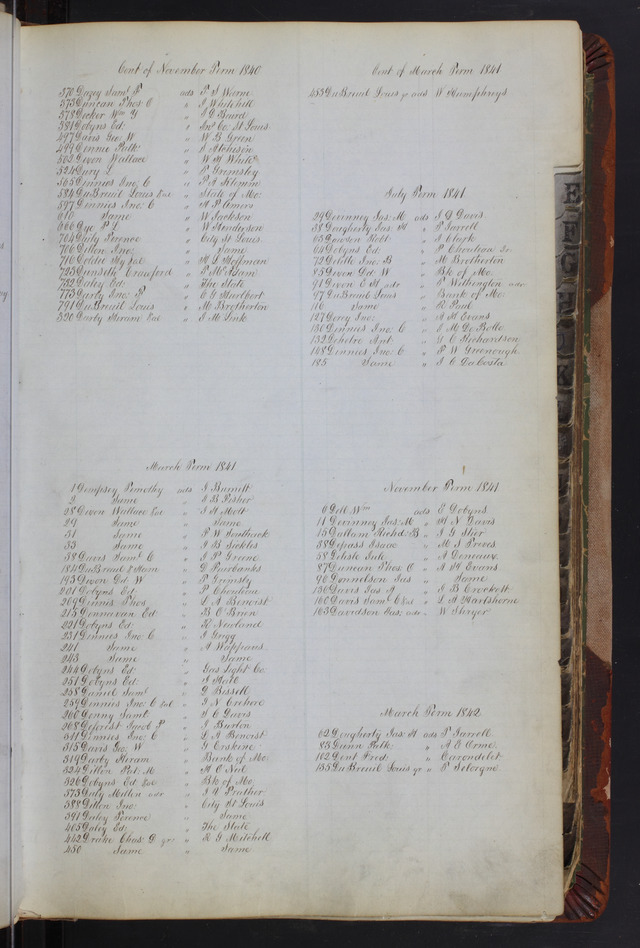 Cont of November Term 1840
570 Dagey Saml P ads P S Warne
573 Duncan Thos C " J Whitehill
578 Decker Wm Y " J G Baird
581 Dobyns Ed. " Ins Co. St Louis
497 Davis Geo W " W B Green
499 Dennie Patk " A Atchison
503 Devon Wallace " W H White
524 Dury L
565 Dinnies Jno: C
584 DuBreuil Louis Exr " State of Mo:
597 Dinnies Jno: C
610 Same " W Jackson
666 Dye P T " W Henderson
704 Daily Terence " City St Louis
706 Dillon Jno: " Same
716 " H L Hoffman
725 Dunsith Crawford " P McAdam
752 Daley Ed: " The State
775 Darby Jno: F " E G Hurlbert
791 DuBreuil Louis " M Brotherton
390 Darby Hiram Exr " J M Link
Cont of March Term 1841
453 DuBreuil Louis jr ads W Humphreys
July Term 1841
29 Devinney Jas: M ads J G Davis
38 Dougherty Jas: H " P Farrell
65 Dowden Robt " J Clark
64 Dobyns Ed " P Chouteau Jr
72 Doble Jno: B " M Brotherton
85 Devon Ed. W " Bk of Mo.
91 Devon E H adr " P Withington adr
97 DuBreuil Louis " Bank of Mo:
116 Same " R Paul
127 Dorey Jno: " A H Evans
130 Dinnies Jno: C " E M De Bolle
133 Deheloe Ant " G C Richardson
148 Dinnies Jno: C " P W Greenough
185 Same " J C DaCosta
March Term 1841
1 Dempsey Timothy ads J Burnitt
2 Same " J B Fisher
28 Devon Wallace Exr " J H Mott
29 Same " Same
31 Same " P W Southack
33 Same " J B Sickles
38 Davis Saml C " J P Greene
184 DuBreuil & Ham " D Fairbanks
193 Devon Ed W " P Grimsley
201 Dobyns Ed: " P Chouteau
209 Dennis Thos " L A Benoist
213 Donnavan Ed: " B O'Brien
221 Dobyns Ed: " R Newland
231 Dinnies Jno: C " J Trigg
241 Same " A Wappans
243 Same " Same
244 Dobyns Ed: " Gas Light Co:
251 Dobyns Ed: " J Hall
258 Daniel Saml " D Bissell
259 Dinnies Jno: C Exr
260 Denny Saml " H C Davis
308 Deforist Jacob P " J Burton
311 Dinnies Jno: C " L A Benoist
315 Davis Geo: W " G Erskine
319 Darby Hiram " Bank of Mo:
324 Dillon Pat. M " H O Neil
326 Dobyns Ed: Exr " Bk of Mo
373 Daly Miller adr " J V Prather
388 Dillon Jno: " City St Louis
391 Daley Terence " Same
405 Daley Ed: " The State
442 Drake Chas: D gr: " R G Mitchell
450 Same " Same
November Term 1841
6 Dell Wm ads E Dobyns
11 Devinney Jas: M " H N Davis
15 Dallam Richd: B " J G Shor
38 Depass Isaac " M S Treves
58 Delisle Eule " A Denaux
87 Duncan Thos C " A H Evans
96 Donnelson Jas " Same
136 Davis Jas H " J B Crockett
160 Davis Saml C Exr " L A Hartshorne
163 Davidson Jas: adr " W Shryer
March Term 1842
62 Dougherty Jas H ads P Farrell
83 Dunn Patk " A E Orme
102 Dent Fred: " Carondelet
155 DuBreuil Louis gr " P Delorgne
E
F
G
H
K